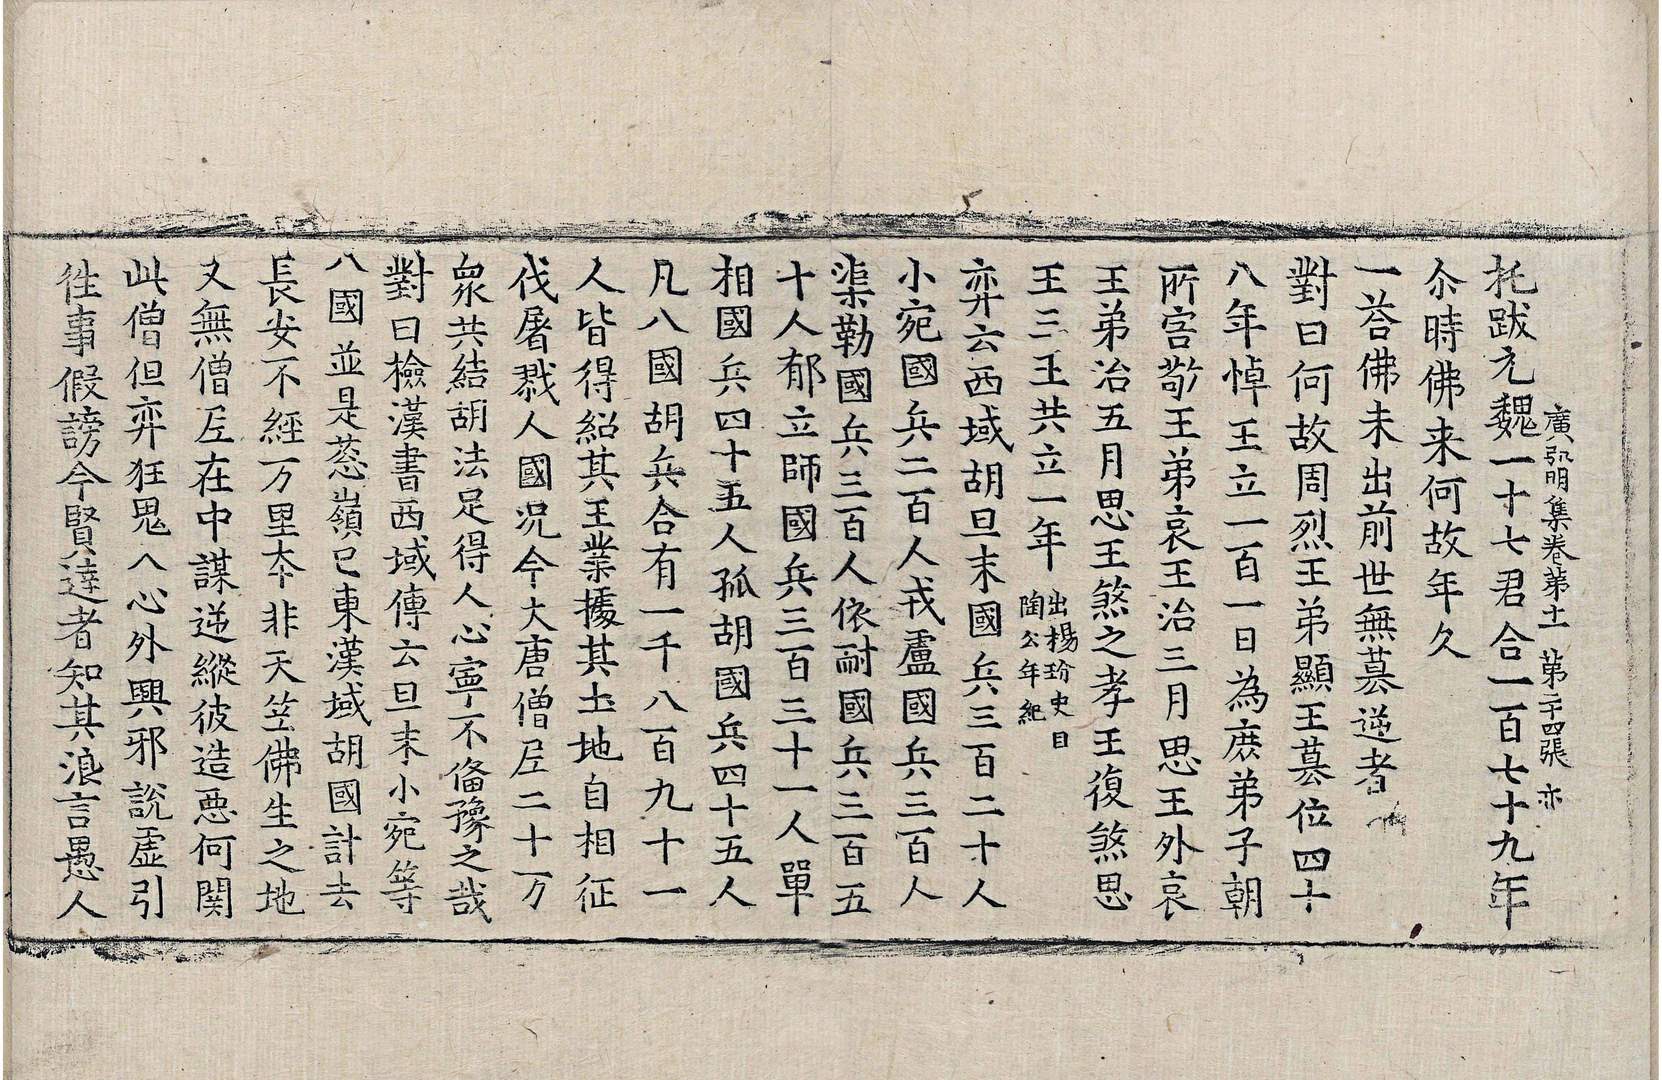 廣弘明集卷第十一 第二十四張 亦
托跋元魏一十七君合一百七十九年
尒時佛来何故年久
一荅佛未出前世無墓逆者
對曰何故周烈王弟顯王墓位四十
八年悼王立一百一日為庶弟子朝
所害敬王弟哀王治三月思王外哀
王弟治五月思王煞之孝王復煞思
王三王共立一年出楊玢史目
陶公年紀
弈云西域胡旦末國兵三百二十人
小宛國兵二百人戎盧國兵三百人
渠勒國兵三百人依耐國兵三百五
十人郁立師國兵三百三十一人單
相國兵四十五人孤胡國兵四十五人
凡八國胡兵合有一千八百九十一
人皆得紹其王業據其土地自相征
伐屠戮人國况今大唐僧尼二十万
衆共結胡法足得人心寧不俻豫之哉
對曰檢漢書西域傳云旦末小宛等
八國並是葱嶺已東漢域胡國計去
長安不經一万里夲非天竺佛生之地
又無僧尼在中謀逆縱彼造惡何関
此僧但弈狂鬼入心外興邪說虛引
徃事假謗今賢達者知其浪言愚人